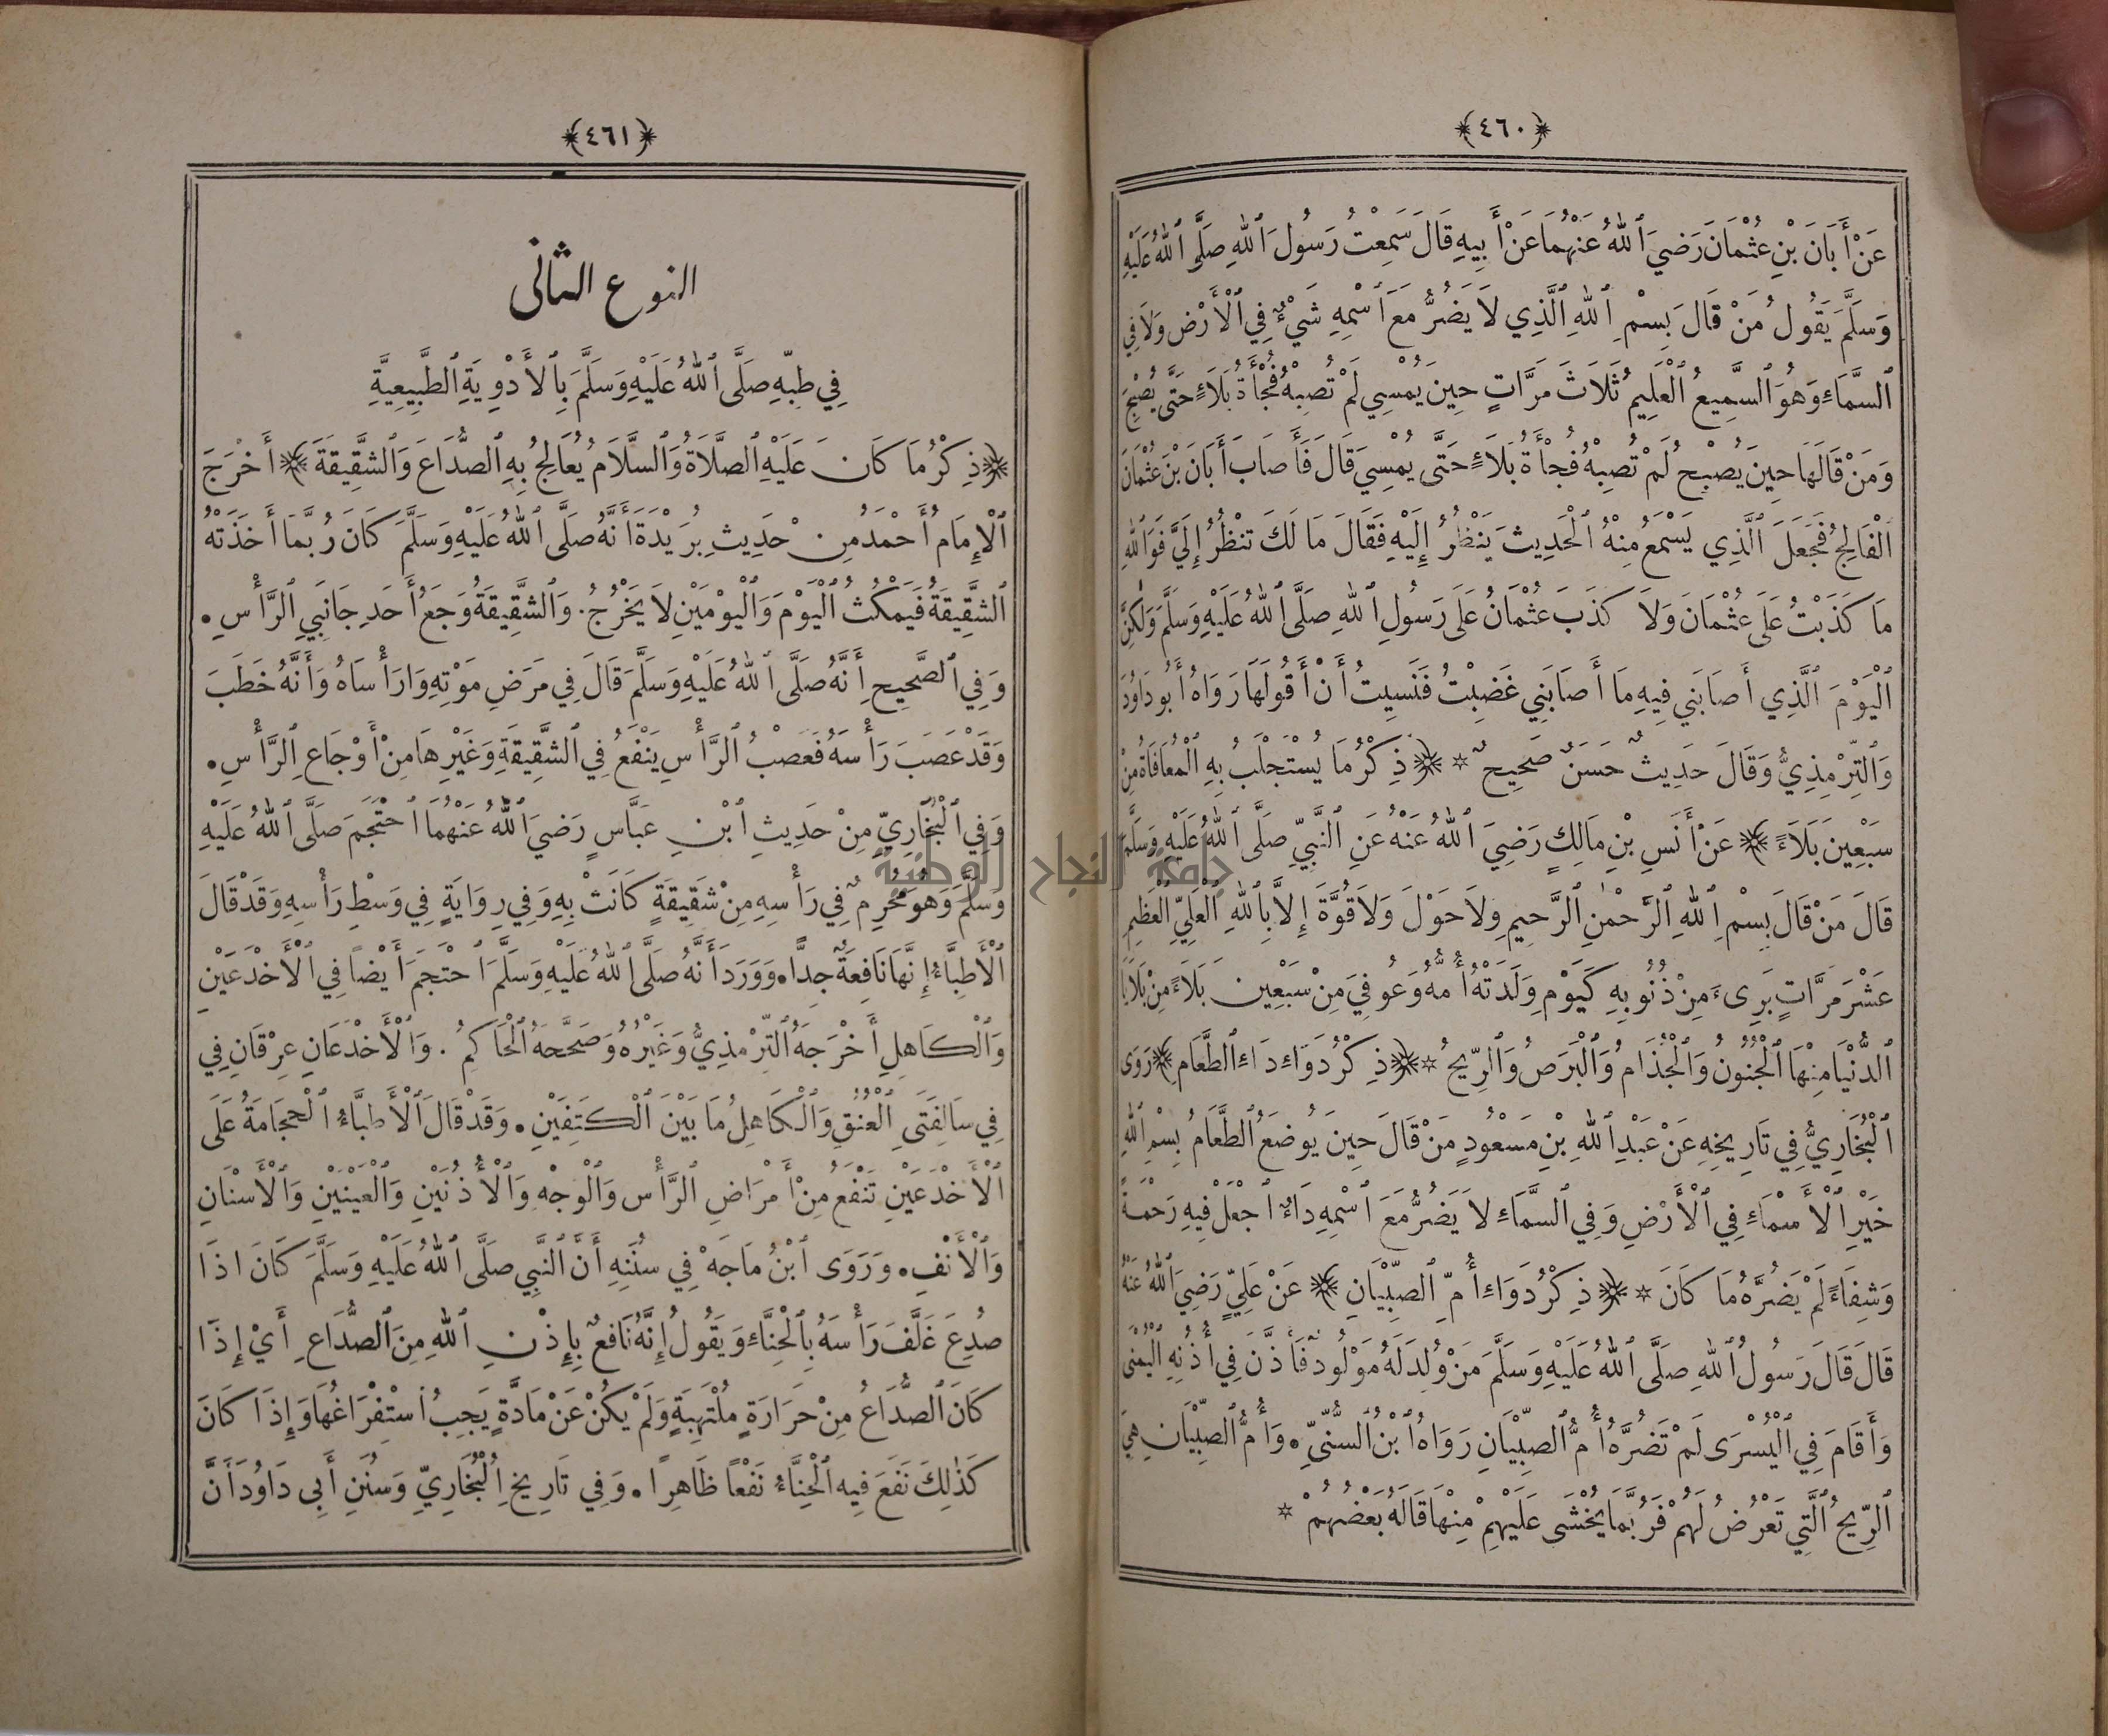 ﴿٤٦٠﴾
عَنْ أَبَانَ بْنِ عُثْمَانَ رَضِيَ ٱللهُ عَنْهُمَا عَنْ أَبِيهِ قَالَ سَمِعْتُ رَسُولَ ٱللهِ صَلَّى ٱللهُ عَلَيْهِ
وَسَلَّمَ يَقُولُ مَنْ قَالَ بِسْمِ ٱللهِ ٱلَّذِي لَا يَضُرُّ مَعَ ٱسْمِهِ شَيْءٌ فِي ٱلْأَرْضِ وَلَا فِي
ٱلسَّمَاءِ وَهُوَ ٱلسَّمِيعُ ٱلْعَلِيمُ ثَلَاثَ مَرَّاتٍ حِينَ يُمْسِي لَمْ تُصِبْهُ فُجْأَةُ بَلَاءٍ حَتَّى يُصْبِحَ
وَمَنْ قَالَهَا حِينَ يُصْبِحُ لَمْ تُصِبْهُ فُجْأَةُ بَلَاءٍ حَتَّى يُمْسِيَ قَالَ فَأَصَابَ أَبَانَ بْنَ عُثْمَانَ
ٱلْفَالِجُ فَجَعَلَ ٱلَّذِي يَسْمَعُ مِنْهُ ٱلْحَدِيثَ يَنْظُرُ إِلَيْهِ فَقَالَ مَا لَكَ تَنْظُرُ إِلَيَّ فَوَٱللهِ
مَا كَذَبْتُ عَلَى عُثْمَانَ وَلَا كَذَبَ عُثْمَانُ عَلَى رَسُولِ ٱللهِ صَلَّى ٱللهُ عَلَيْهِ وَسَلَّمَ وَلَكِنَّ
ٱلْيَوْمَ ٱلَّذِي أَصَابَنِي فِيهِ مَا أَصَابَنِي غَضِبْتُ فَنَسِيتُ أَنْ أَقُولَهَا رَوَاهُ أَبُو دَاوُدَ
وَٱلتِّرْمِذِيُّ وَقَالَ حَدِيثٌ حَسَنٌ صَحِيحٌ * ﴿ ذِكْرُ مَا يُسْتَجْلَبُ بِهِ ٱلْمُعَافَاةُ مِنْ
سَبْعِينَ بَلَاءً ﴾ عَنْ أَنَسِ بْنِ مَالِكٍ رَضِيَ ٱللهُ عَنْهُ عَنِ ٱلنَّبِيِّ صَلَّى ٱللهُ عَلَيْهِ وَسَلَّمَ
قَالَ مَنْ قَالَ بِسْمِ ٱللهِ ٱلرَّحْمٰنِ ٱلرَّحِيمِ وَلَا حَوْلَ وَلَا قُوَّةَ إِلَّا بِٱللهِ ٱلْعَلِيِّ ٱلْعَظِيمِ
عَشْرَ مَرَّاتٍ بَرِىءَ مِنْ ذُنُوبِهِ كَيَوْمِ وَلَدَتْهُ أُمُّهُ وَعُوفِيَ مِنْ سَبْعِينَ بَلَاءً مِنْ بَلَايَا
ٱلدُّنْيَا مِنْهَا ٱلْجُنُونُ وَٱلْجُذَامُ وَٱلْبَرَصُ وَٱلرِّيحُ * ﴿ ذِكْرُ دَوَاءِ دَاءِ ٱلطَّعَامِ ﴾ رَوَى
ٱلْبُخَارِيُّ فِي تَارِيخِهِ عَنْ عَبْدِ ٱللهِ بْنِ مَسْعُودٍ مَنْ قَالَ حِينَ يُوضَعُ ٱلطَّعَامُ بِسْمِ ٱللهِ
خَيْرِ ٱلْأَسْمَاءِ فِي ٱلْأَرْضِ وَفِي ٱلسَّمَاءِ لَا يَضُرُّ مَعَ ٱسْمِهِ دَاءٌ ٱجْعَلْ فِيهِ رَحْمَةً
وَشِفَاءً لَمْ يَضُرَّهُ مَا كَانَ * ﴿ ذِكْرُ دَوَاءِ أُمِّ ٱلصِّبْيَانِ ﴾ عَنْ عَلِيٍّ رَضِيَ ٱللهُ عَنْهُ
قَالَ قَالَ رَسُولُ ٱللهِ صَلَّى ٱللهُ عَلَيْهِ وَسَلَّمَ مَنْ وُلِدَ لَهُ مَوْلُودٌ فَأَذَّنَ فِي أُذُنِهِ ٱلْيُمْنَى
وَأَقَامَ فِي ٱلْيُسْرَى لَمْ تَضُرَّهُ أُمُّ ٱلصِّبْيَانِ رَوَاهُ ٱبْنُ ٱلسُّنِّيِّ • وَأُمُّ ٱلصِّبْيَانِ هِيَ
ٱلرِّيحُ ٱلَّتِي تَعْرُضُ لَهُمْ فَرُبَّمَا يُخْشَى عَلَيْهِمْ مِنْهَا قَالَهُ بَعْضُهُمْ *
﴿٤٦١﴾
النوع الثانى
فِي طِبِّهِ صَلَّى ٱللهُ عَلَيْهِ وَسَلَّمَ بِٱلْأَدْوِيَةِ ٱلطَّبِيعِيَّةِ
﴿ ذِكْرُ مَا كَانَ عَلَيْهِ ٱلصَّلَاةُ وَٱلسَّلَامُ يُعَالِجُ بِهِ ٱلصُّدَاعَ وَٱلشَّقِيقَةَ ﴾ أَخْرَجَ
ٱلْإِمَامُ أَحْمَدُ مِنْ حَدِيثِ بُرَيْدَةَ أَنَّهُ صَلَّى ٱللهُ عَلَيْهِ وَسَلَّمَ كَانَ رُبَّمَا أَخَذَتْهُ
ٱلشَّقِيقَةُ فَيَمْكُثُ ٱلْيَوْمَ وَٱلْيَوْمَيْنِ لَا يَخْرُجُ. وَٱلشَّقِيقَةُ وَجَعُ أَحَدِ جَانِبَيِ ٱلرَّأْسِ •
وَفِي ٱلصَّحِيحِ أَنَّهُ صَلَّى ٱللهُ عَلَيْهِ وَسَلَّمَ قَالَ فِي مَرَضِ مَوْتِهِ وَارَأْسَاهُ وَأَنَّهُ خَطَبَ
وَقَدْ عَصَبَ رَأْسَهُ فَعَصْبُ ٱلرَّأْسِ يَنْفَعُ فِي ٱلشَّقِيقَةِ وَغَيْرِهَا مِنْ أَوْجَاعِ ٱلرَّأْسِ •
وَفِي ٱلْبُخَارِيِّ مِنْ حَدِيثِ ٱبْنِ عَبَّاسٍ رَضِيَ ٱللهُ عَنْهُمَا ٱحْتَجَمَ صَلَّى ٱللهُ عَلَيْهِ
وَسَلَّمَ وَهُوَ مُحْرِمٌ فِي رَأْسِهِ مِنْ شَقِيقَةٍ كَانَتْ بِهِ وَفِي رِوَايَةٍ فِي وَسْطِ رَأْسِهِ وَقَدْ قَالَ
ٱلْأَطِبَّاءُ إِنَّهَا نَافِعَةٌ جِدًّا • وَوَرَدَ أَنَّهُ صَلَّى ٱللهُ عَلَيْهِ وَسَلَّمَ ٱحْتَجَمَ أَيْضًا فِي ٱلْأَخْدَعَيْنِ
وَٱلْكَاهِلِ أَخْرَجَهُ ٱلتِّرْمِذِيُّ وَغَيْرُهُ وَصَحَّحَهُ ٱلْحَاكِمُ . وَٱلْأَخْدَعَانِ عِرْقَانِ فِي
فِي سَالِفَتَيِ ٱلْعُنُقِ وَٱلْكَاهِلُ مَا بَيْنَ ٱلْكَتِفَيْنِ • وَقَدْ قَالَ ٱلْأَطِبَّاءُ ٱلْحِجَامَةُ عَلَى
ٱلْأَخْدَعَيْنِ تَنْفَعُ مِنْ أَمْرَاضِ ٱلرَّأْسِ وَٱلْوَجْهِ وَٱلْأُذُنَيْنِ وَٱلْعَيْنَيْنِ وَٱلْأَسْنَانِ
وَٱلْأَنْفِ • وَرَوَى ٱبْنُ مَاجَهْ فِي سُنَنِهِ أَنَّ ٱلنَّبِي صَلَّى ٱللهُ عَلَيْهِ وَسَلَّمَ كَانَ اذَا
صُدِعَ غَلَّفَ رَأْسَهُ بِٱلْحِنَّاءِ وَيَقُولُ إِنَّهُ نَافِعٌ بِإِذْنِ ٱللهِ مِنَ ٱلصُّدَاعِ أَيْ إِذَا
كَانَ ٱلصُّدَاعُ مِنْ حَرَارَةٍ مُلْتَهِبَةٍ وَلَمْ يَكُنْ عَنْ مَادَّةٍ يَجِبُ ٱسْتِفْرَاغُهَا وَإِذَا كَانَ
كَذٰلِكَ نَفَعَ فِيهِ ٱلْحِنَّاءُ نَفْعًا ظَاهِرًا • وَفِي تَارِيخِ ٱلْبُخَارِيِّ وَسُنَنِ أَبِى دَاوُدَ أَنَّ
جامعة النجاح الوطنية